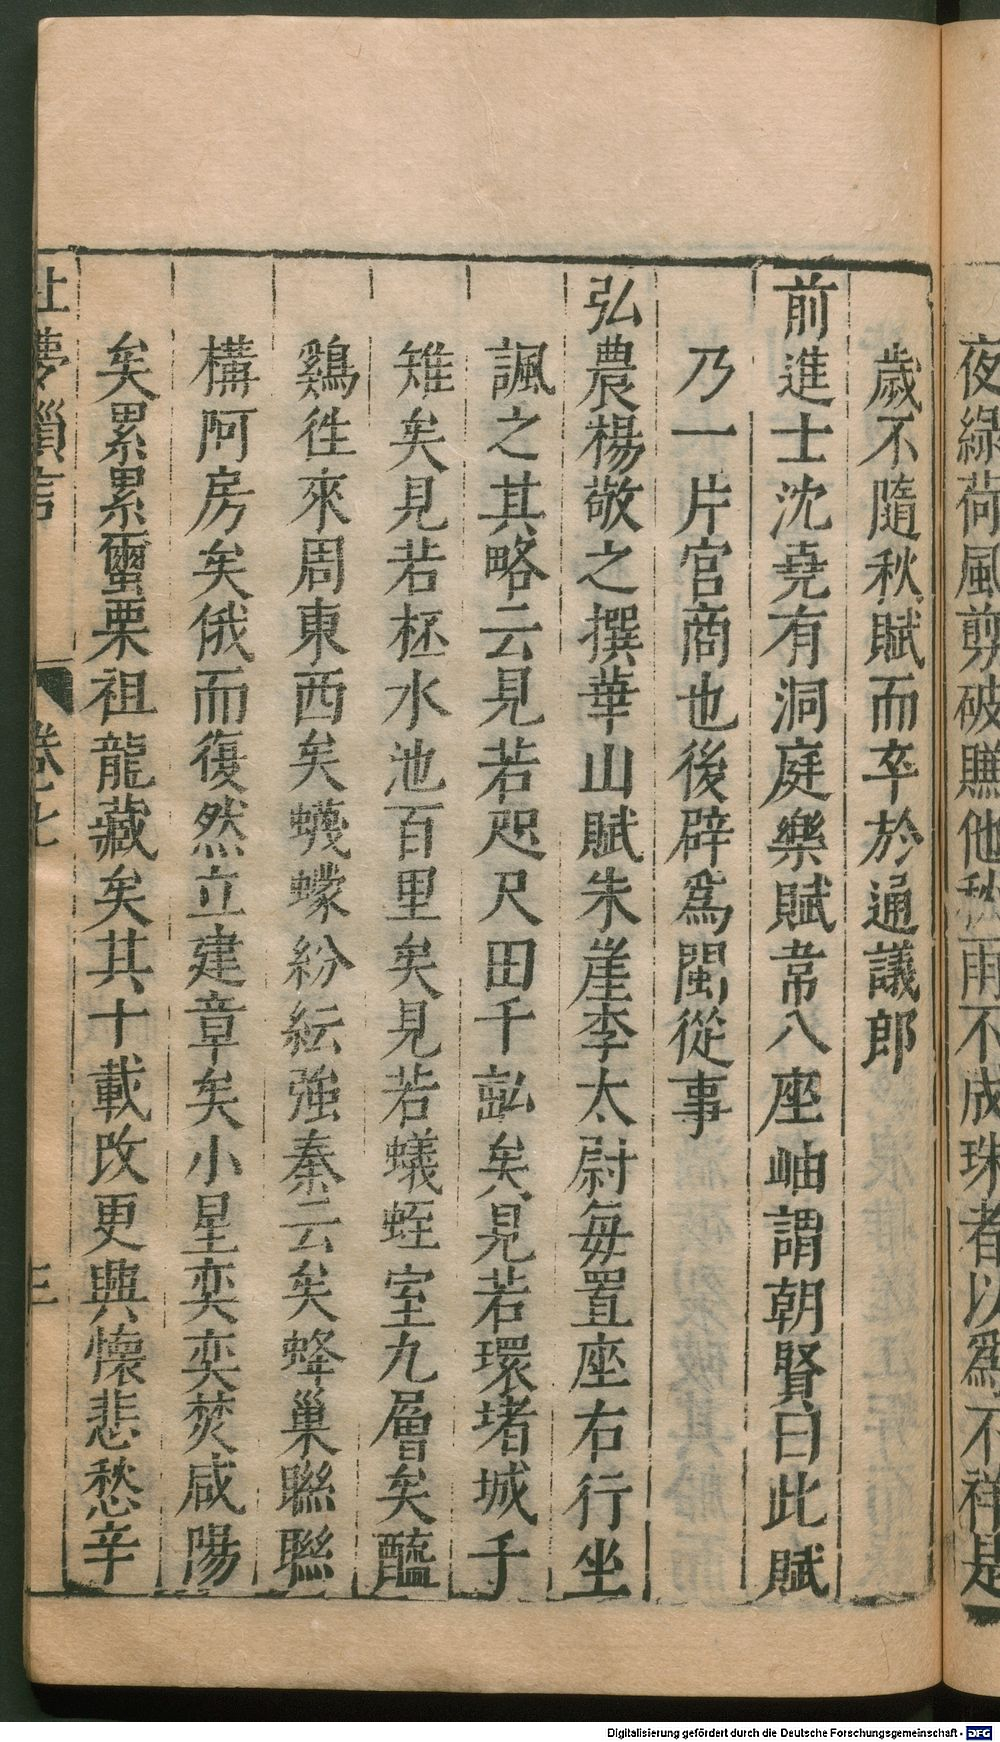 夜綠荷風剪破賺他秋雨不成珠者以爲不祥是
歲不隨秋賦而卒於通議郎
前進士沈堯有洞庭樂賦韋八座岫謂朝賢曰此賦
乃一片宮商也後辟爲閩從事
弘農楊敬之撰華山賦朱崖李太尉每置座右行坐
諷之其略云見若咫尺田千畝矣見若環堵城千
雉矣見若杯水池百里矣見若蟻蛭室九層矣醯
鷄徃來周東西矣蠛蠓紛紜強秦云矣蜂巢聯聯
構阿房矣俄而復然立建章矣小星奕奕焚咸陽
矣累累蠒栗祖龍藏矣其十載改更興懷悲愁辛
北夢瑣言 卷七 三
Digitalisierung gefördert durch die Deutsche Forschungsgemeinschaft - DFG